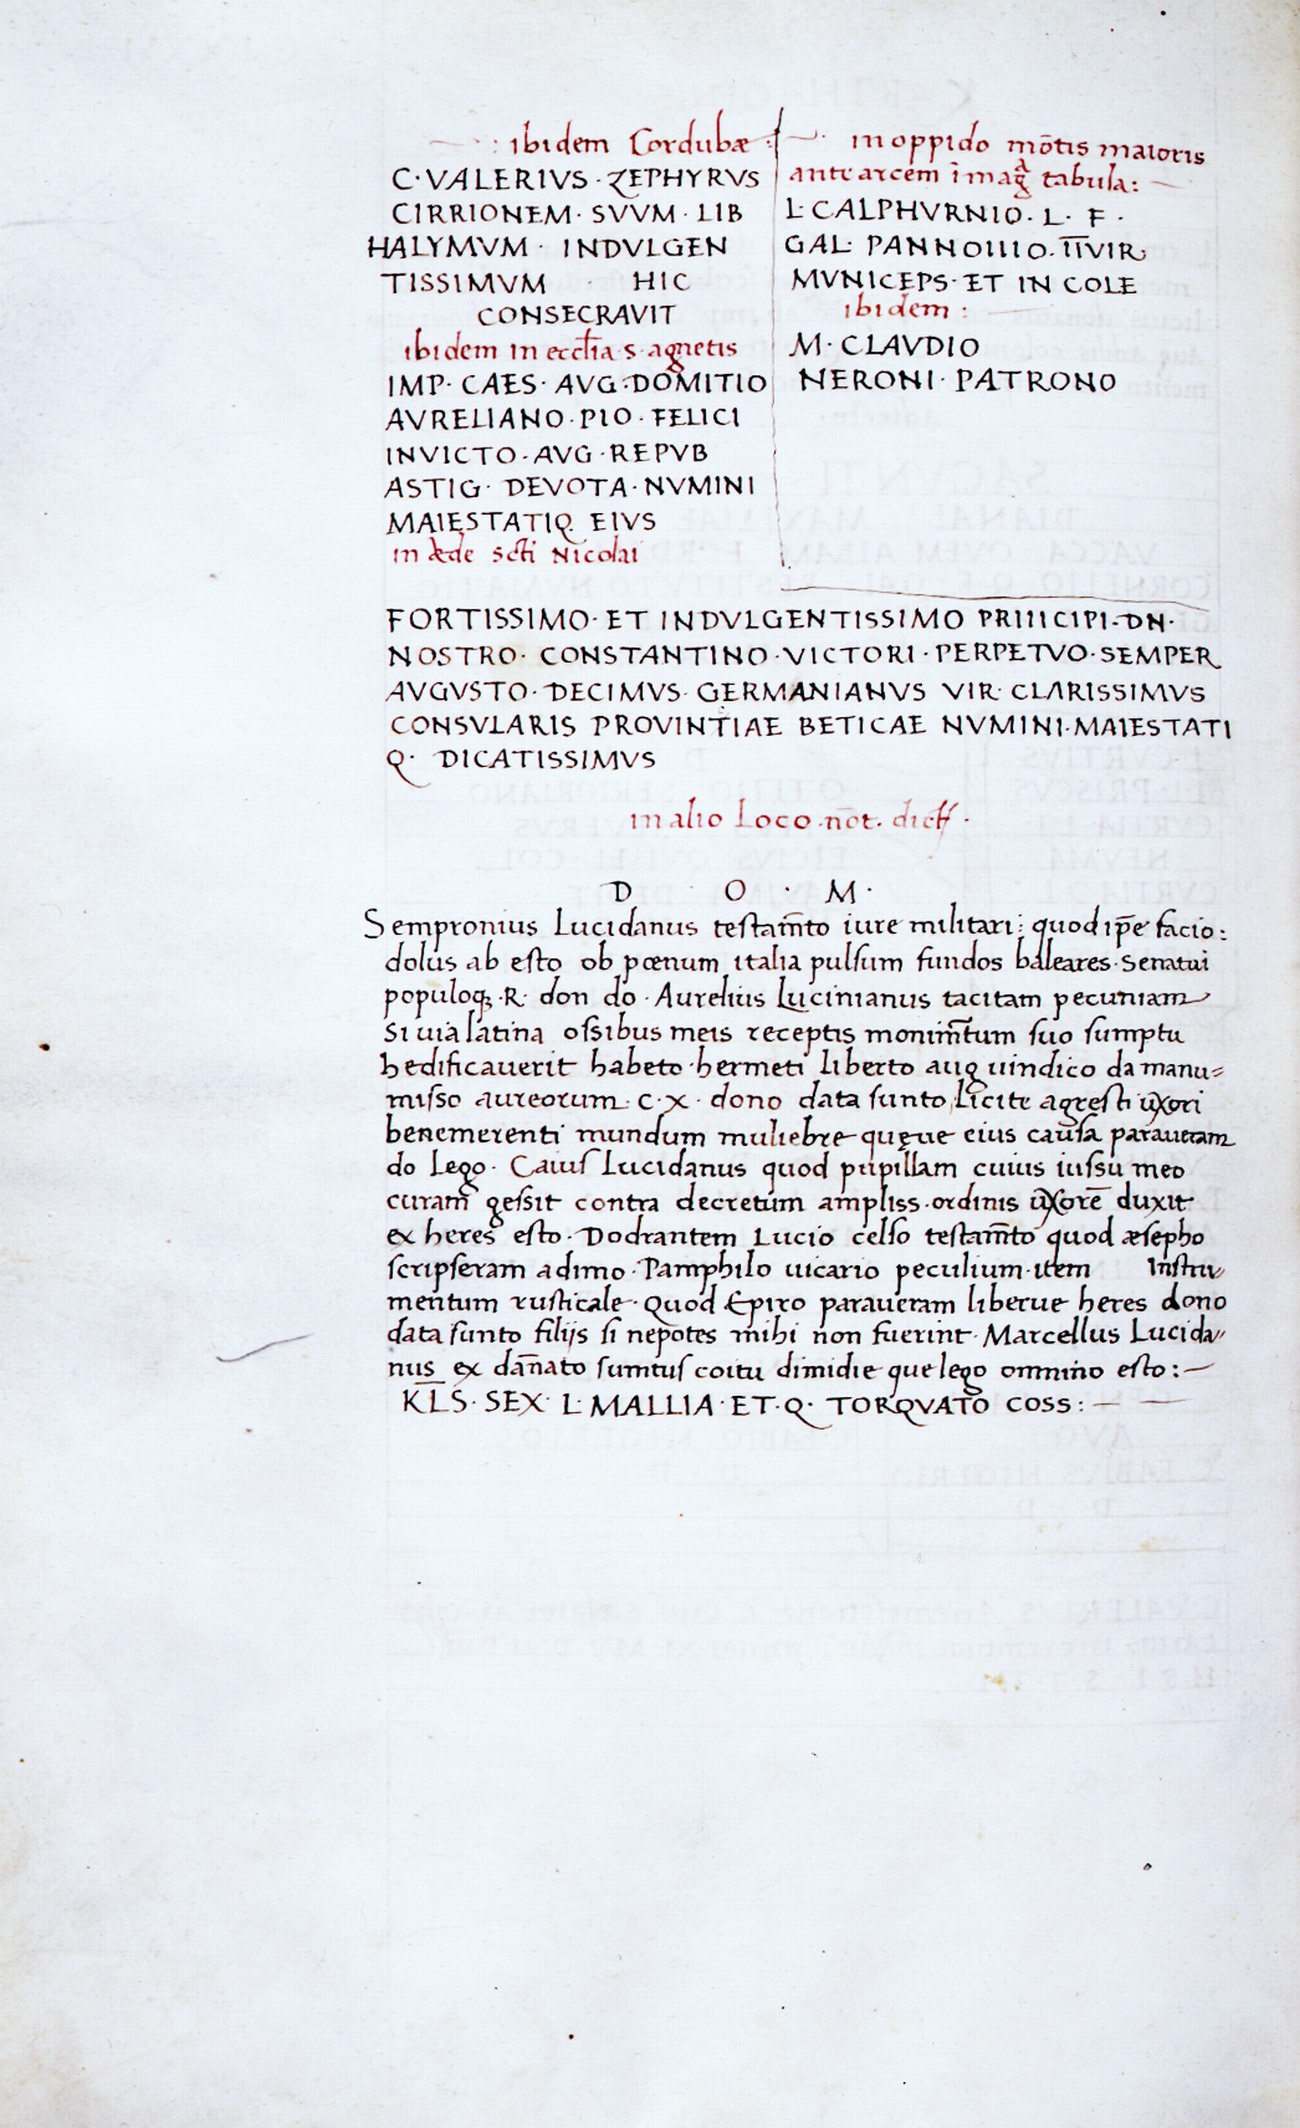 ibidem Cordubæ
C·VALERIVS·ZEPHYRVS
CIRRIONEM·SVVM·LIB
HALYMVM· INDVLGEN
TISSIMVM HIC
CONSECRAVIT
ibidem in eccl̄ia·s·agnetis
IMP·CAES·AVG·DOMITIO
AVRELIANO·PIO·FELICI
INVICTO·AVG·REPVB
ASTIG· DEVOTA·NVMINI
MAIESTATIQ. EIVS
in Æde scti Nicolai
in oppido mōtis maioris
ante arcem ī mag̃ tabula:
L·CALPHVRNIO·L·F·
GAL· PANNOIIIO·I̅I̅VIR·
MVNICEPS·ET IN COLE
ibidem:
M·CLAVDIO
NERONI·PATRONO
FORTISSIMO·ET INDVLGENTISSIMO PRIIICIPI·DN·
NOSTRO·CONSTANTINO·VICTORI·PERPETVO·SEMPER
AVGVSTO·DECIMVS·GERMANIANVS VIR·CLARISSIMVS
CONSVLARIS PROVINTIAE BETICAE NVMINI·MAIESTATI
Q· DICATISSIMVS
in alio Loco·nōt·
D · O · M·
Sempronius Lucidanus testam̄to iure militari: quod ip̄e facio:
dolus ab esto ob pœnum italia pulsum fundos baleares·senatui
populoq;·R· don do·Aurelius Lucinianus tacitam pecuniam
Si uia latina ossibus meis receptis monim̄tum suo sumptu
hedificauerit habeto·hermeti liberto aug uindico da manu=
misso aureorum·c·x· dono data sunto licite agresti uxori
benemerenti mundum muliebre quęue eius causa paraueram
do Lego· Caius Lucidanus quod pupillam cuius iussu meo
curam gessit contra decretum ampliss·ordinis uxorē duxit
ex heres esto·Dodrantem Lucio celso testam̄to quod æsepho
scripseram adimo·Pamphilo uicario peculium·item Instru=
mentum rusticale·Quod Epiro paraueram liberue heres dono
data sunto filijs si nepotes mihi non fuerint·Marcellus Lucida=
nus ex dañato sumtus coitu dimidie que lego omnino esto:
KLS·SEX·L·MALLIA·ET·Q·TORQVATO COSS: